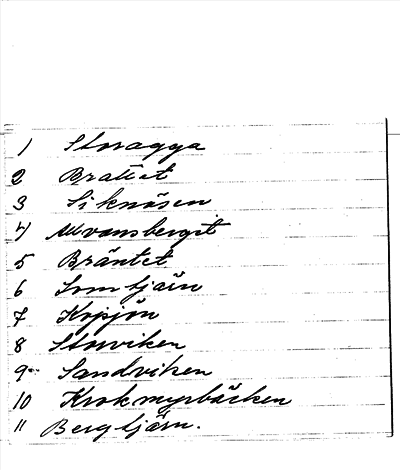 1 Storagga
2 Brattet
3 Siknäsen
4 Alvansberget
5 Bräntet
6 tjärn
7
8 Storviken
9 Sandviken
10 Krokmyrbäcken
11 Bergtjärn.